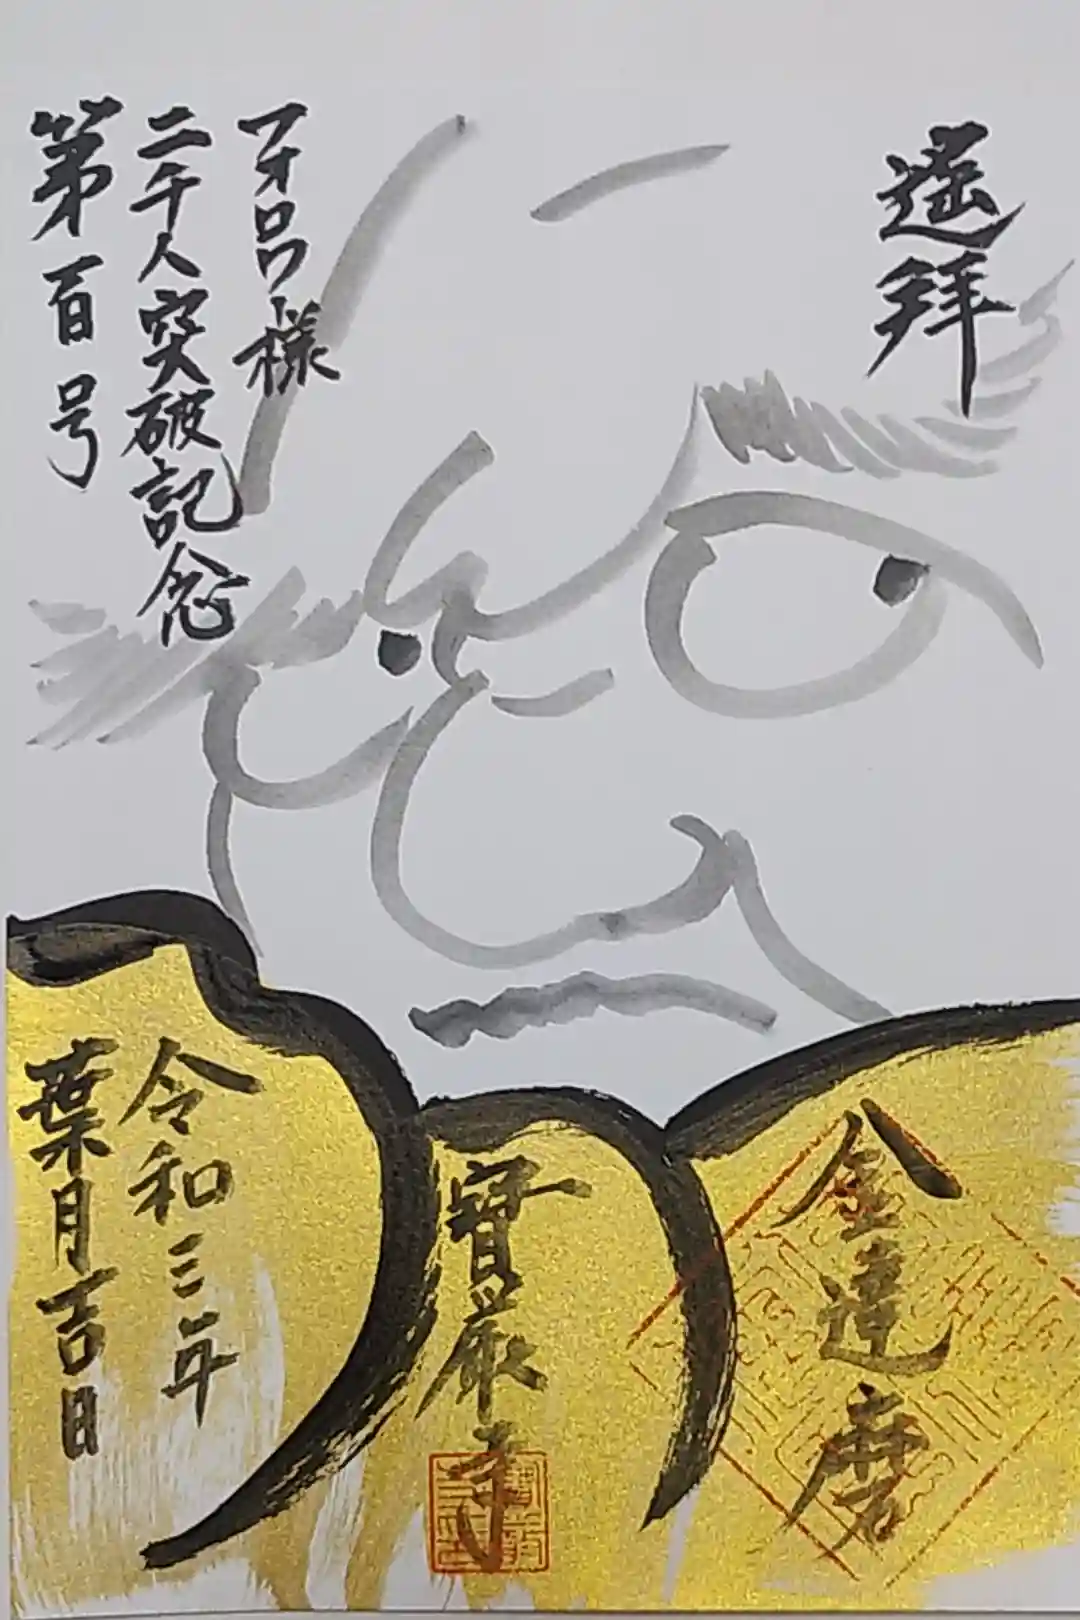 遥拝
フォロワー様
二千人突破記念
第百号
金達磨
寶嚴寺
令和三年
葉月吉日